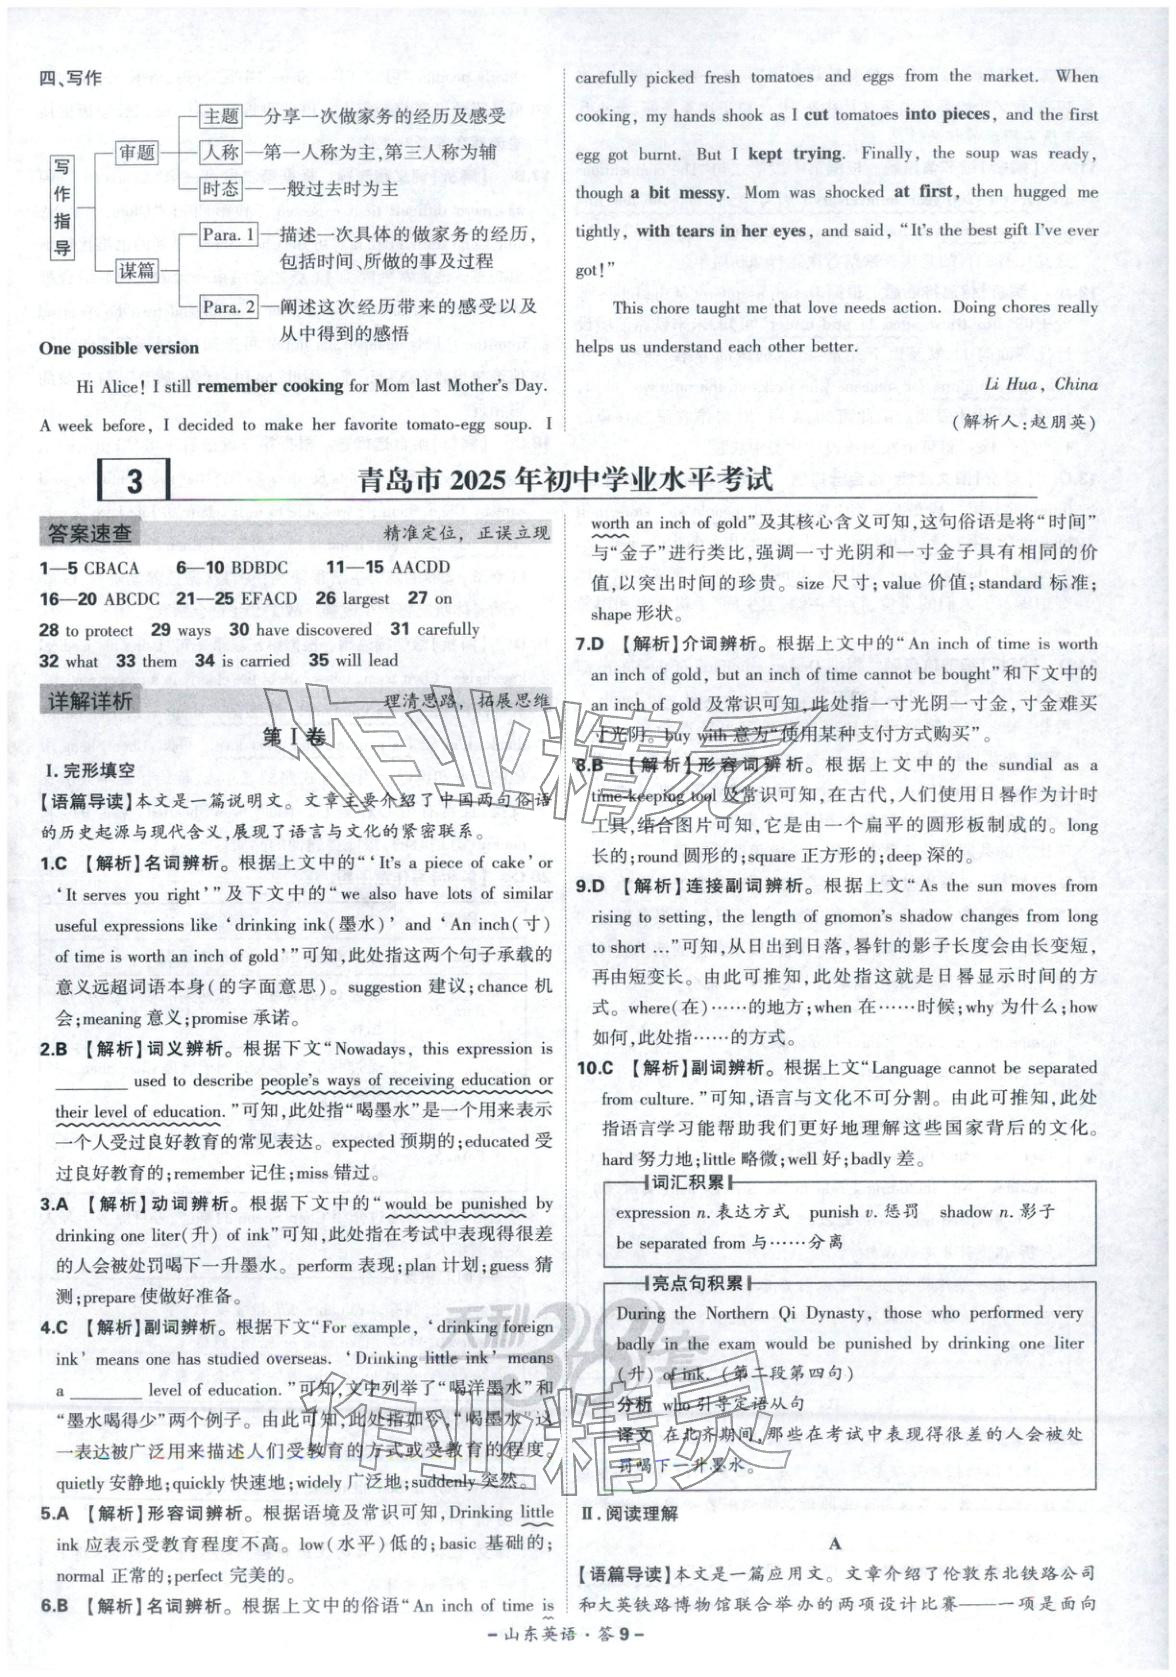 四、写作
写作指导
审题
主题
分享一次做家务的经历及感受
人称
第一人称为主,第三人称为辅
时态
一般过去时为主
谋篇
Para. 1
描述一次具体的做家务的经历,
包括时间、所做的事及过程
Para. 2
阐述这次经历带来的感受以及
从中得到的感悟
One possible version
Hi Alice! I still remember cooking for Mom last Mother's Day.
A week before, I decided to make her favorite tomato-egg soup. I
carefully picked fresh tomatoes and eggs from the market. When
cooking, my hands shook as I cut tomatoes into pieces, and the first
egg got burnt. But I kept trying. Finally, the soup was ready,
though a bit messy. Mom was shocked at first, then hugged me
tightly, with tears in her eyes, and said, "It's the best gift I've ever
got!"
This chore taught me that love needs action. Doing chores really
helps us understand each other better.
Li Hua, China
(解析人:赵朋英)
3
青岛市 2025 年初中学业水平考试
答案速查
精准定位，正误立现
1—5 CBACA 6—10 BDBDC 11—15 AACDD
16—20 ABCDC 21—25 EFACD 26 largest 27 on
28 to protect 29 ways 30 have discovered 31 carefully
32 what 33 them 34 is carried 35 will lead
详解详析
理清思路，拓展思维
第Ⅰ卷
Ⅰ. 完形填空
【语篇导读】本文是一篇说明文。文章主要介绍了中国两句俗语
的历史起源与现代含义,展现了语言与文化的紧密联系。
1.C 【解析】名词辨析。根据上文中的"'It's a piece of cake' or
'It serves you right'"及下文中的"we also have lots of similar
useful expressions like 'drinking ink(墨水)' and 'An inch(寸)
of time is worth an inch of gold'"可知,此处指这两个句子承载的
意义远超词语本身(的字面意思)。suggestion 建议;chance 机
会;meaning 意义;promise 承诺。
2.B 【解析】词义辨析。根据下文"Nowadays, this expression is
________ used to describe people's ways of receiving education or
their level of education."可知,此处指"喝墨水"是一个用来表示
一个人受过良好教育的常见表达。expected 预期的;educated 受
过良好教育的;remember 记住;miss 错过。
3.A 【解析】动词辨析。根据下文中的"would be punished by
drinking one liter(升) of ink"可知,此处指在考试中表现得很差
的人会被处罚喝下一升墨水。perform 表现;plan 计划;guess 猜
测;prepare 使做好准备。
4.C 【解析】副词辨析。根据下文"For example, 'drinking foreign
ink' means one has studied overseas. 'Drinking little ink' means
a ________ level of education."可知,文中列举了"喝洋墨水"和
"墨水喝得少"两个例子。由此可知,此处指如今,"喝墨水"这
一表达被广泛用来描述人们受教育的方式或受教育的程度。
quietly 安静地;quickly 快速地;widely 广泛地;suddenly 突然。
5.A 【解析】形容词辨析。根据语境及常识可知,Drinking little
ink 应表示受教育程度不高。low(水平)低的;basic 基础的;
normal 正常的;perfect 完美的。
6.B 【解析】名词辨析。根据上文中的俗语"An inch of time is
worth an inch of gold"及其核心含义可知,这句俗语是将"时间"
与"金子"进行类比,强调一寸光阴和一寸金子具有相同的价
值,以突出时间的珍贵。size 尺寸;value 价值;standard 标准;
shape 形状。
7.D 【解析】介词辨析。根据上文中的"An inch of time is worth
an inch of gold, but an inch of time cannot be bought"和下文中的
an inch of gold 及常识可知,此处指一寸光阴一寸金,寸金难买
寸光阴。buy with 意为"使用某种支付方式购买"。
8.B 【解析】形容词辨析。根据上文中的 the sundial as a
time-keeping tool 及常识可知,在古代,人们使用日晷作为计时
工具,结合图片可知,它是由一个扁平的圆形板制成的。long
长的;round 圆形的;square 正方形的;deep 深的。
9.D 【解析】连接副词辨析。根据上文"As the sun moves from
rising to setting, the length of gnomon's shadow changes from long
to short ..."可知,从日出到日落,晷针的影子长度会由长变短,
再由短变长。由此可推知,此处指这就是日晷显示时间的方
式。where(在)……的地方;when 在……时候;why 为什么;how
如何,此处指……的方式。
10.C 【解析】副词辨析。根据上文"Language cannot be separated
from culture."可知,语言与文化不可分割。由此可推知,此处
指语言学习能帮助我们更好地理解这些国家背后的文化。
hard 努力地;little 略微;well 好;badly 差。
词汇积累
expression n. 表达方式 punish v. 惩罚 shadow n. 影子
be separated from 与……分离
亮点句积累
During the Northern Qi Dynasty, those who performed very
badly in the exam would be punished by drinking one liter
(升) of ink. (第二段第四句)
分析 who 引导定语从句
译文 在北齐期间,那些在考试中表现得很差的人会被处
罚喝下一升墨水。
Ⅱ. 阅读理解
A
【语篇导读】本文是一篇应用文。文章介绍了伦敦东北铁路公司
和大英铁路博物馆联合举办的两项设计比赛——一项是面向
- 山东英语·答 9 -
作业精灵
天利38套
作业精灵